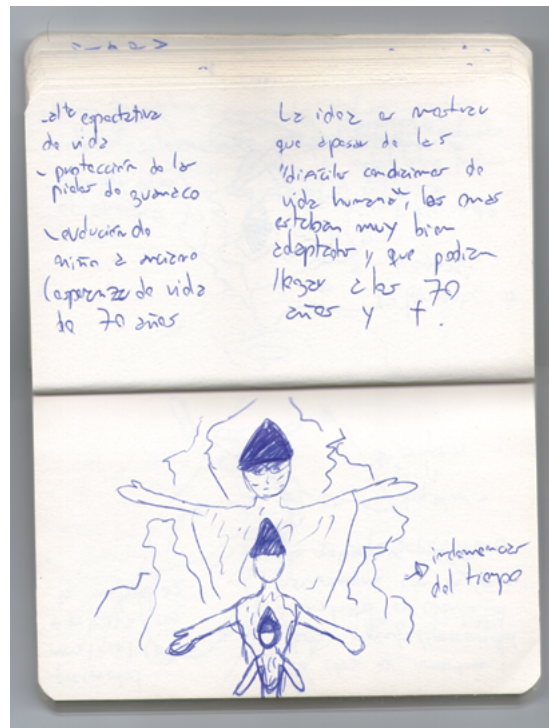 -alta espectativa
de vida
- protección de las
pieles de guanaco
-evolución de
niño a anciano
(esperanza de vida
de 70 años
La idea es mostrar
que apesar de las
"difíciles condiciones de
vida humana", los onas
estaban muy bien
adaptados y que podían
llegar a los 70
años y +.
inclemencias
del tiempo